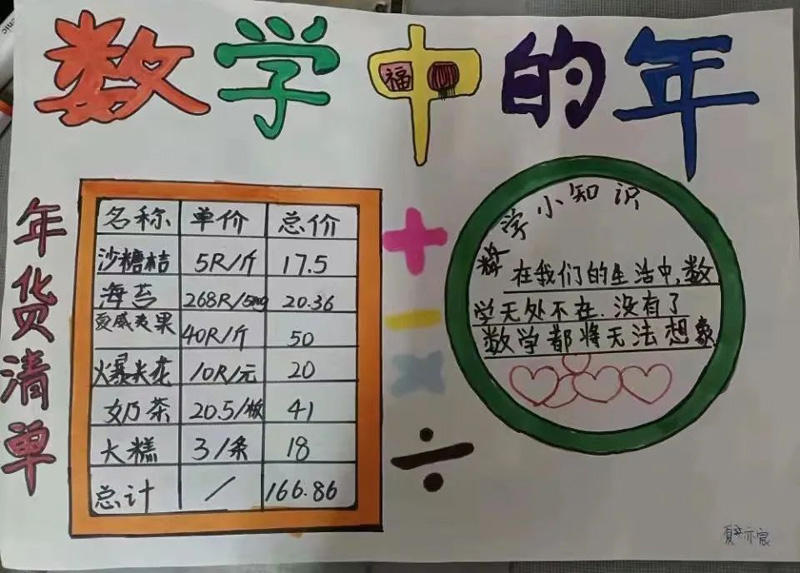 数学中的年
福
年货清单
名称 单价 总价
沙糖桔 5R/斤 17.5
海苔 268R/500g 20.36
夏威夷果 40R/斤 50
爆米花 10R/元 20
奶茶 20.5/板 41
大糕 3/条 18
总计 / 166.86
+
-
×
÷
数学小知识
在我们的生活中,数
学无处不在.没有了
数学都将无法想象